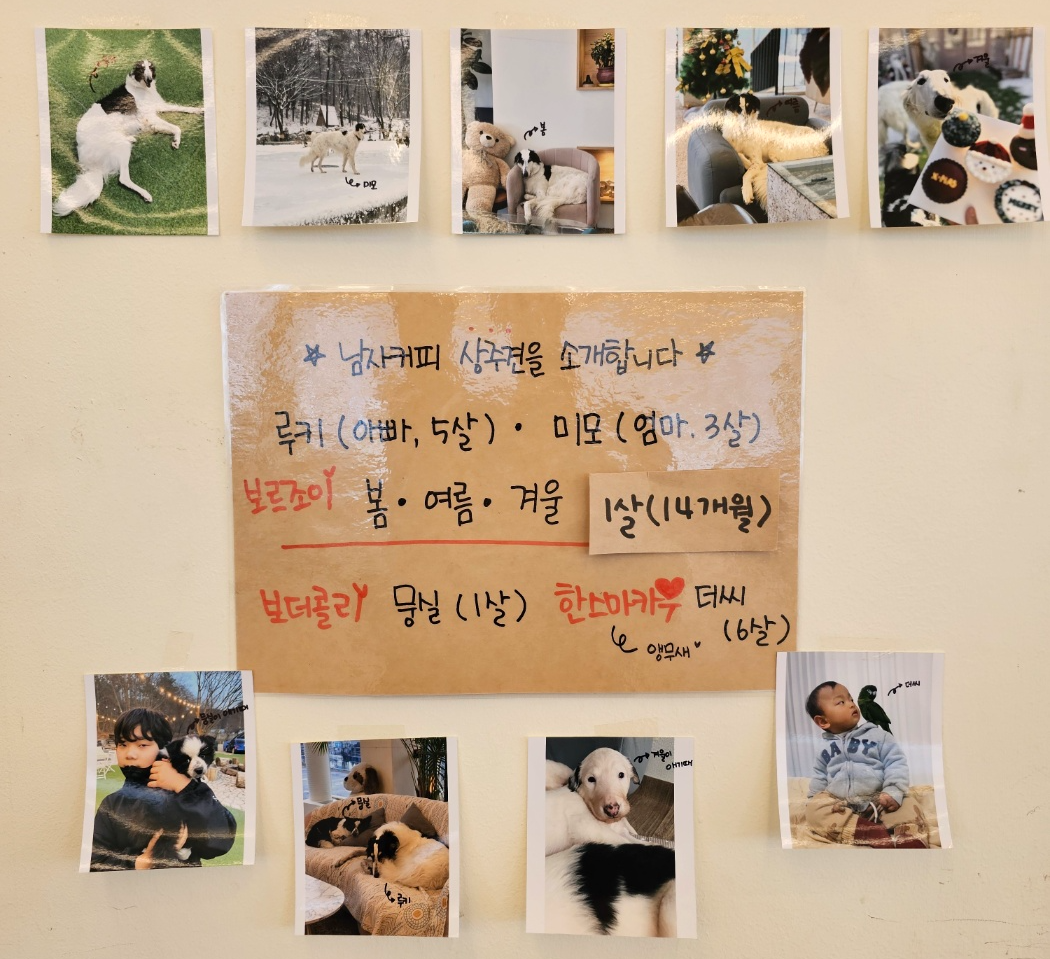 미모
봄
여름
겨울
X-MAS
☆ 남사커피 상주견을 소개합니다 ☆
루키 (아빠, 5살) · 미모 (엄마. 3살)
보르조이 봄 · 여름 · 겨울 1살(14개월)
보더콜리 뭉실 (1살) 한스마카우 더씨
(6살)
앵무새
뭉실이 애기때
뭉실
루키
겨울이
애기때
더씨
BABY